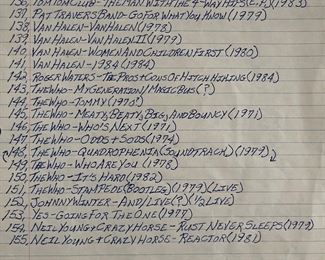 136. TOM TOM CLUB - THE MAN WITH THE 4-WAY HIPS (E.P.) (1983)
137. PAT TRAVERS BAND - GO FOR WHAT YOU KNOW (1979)
138. VAN HALEN - VAN HALEN (1978)
139. VAN HALEN - VAN HALEN II (1979)
140. VAN HALEN - WOMEN AND CHILDREN FIRST (1980)
141. VAN HALEN - 1984 (1984)
142. ROGER WATERS - THE PROS + CONS OF HITCH HIKING (1984)
143. THE WHO - MY GENERATION/MAGIC BUS (?)
144. THE WHO - TOMMY (1970)
145. THE WHO - MEATY, BEATY, BIG, AND BOUNCY (1971)
146. THE WHO - WHO'S NEXT (1971)
147. THE WHO - ODDS + SODS (1974)
148. THE WHO - QUADROPHENIA (SOUNDTRACK) (1979)
149. THE WHO - WHO ARE YOU (1978)
150. THE WHO - IT'S HARD (1982)
151. THE WHO - STAMPEDE (BOOTLEG) (1979) (LIVE)
152. JOHNNY WINTER - AND/LIVE (?) (1/2 LIVE)
153. YES - GOING FOR THE ONE (1977)
154. NEIL YOUNG + CRAZY HORSE - RUST NEVER SLEEPS (1979)
155. NEIL YOUNG + CRAZY HORSE - REACTOR (1981)